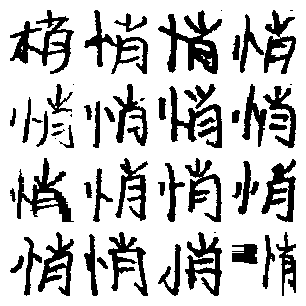 梢悄悄悄
悄悄悄悄
悄悄悄悄
悄悄悄悄